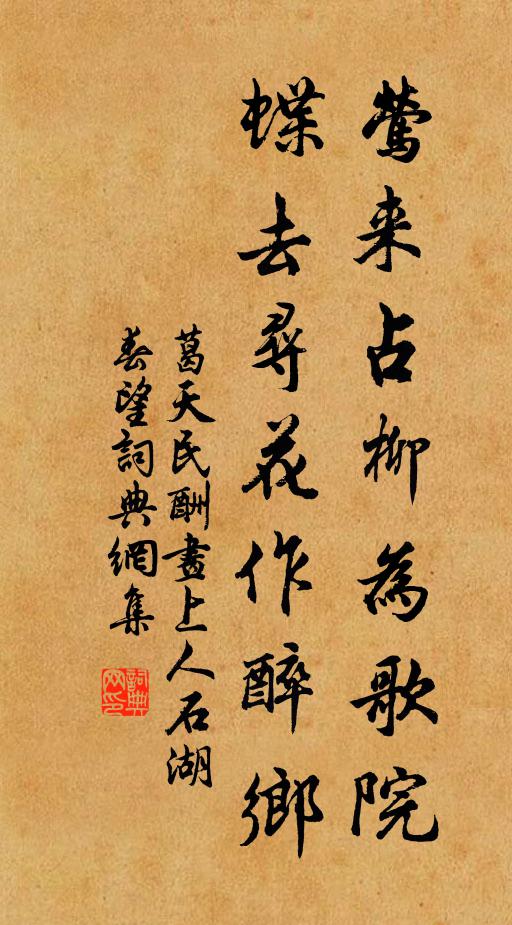 鶯来占柳為歌院
蝶去尋花作醉鄉
葛天民酬畫上人石湖
春望詞典網集
詞典网印